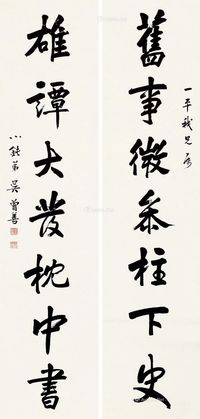 一平我兄
舊事微叅柱下史
雄譚大發枕中書
小鈍弟吳曾善